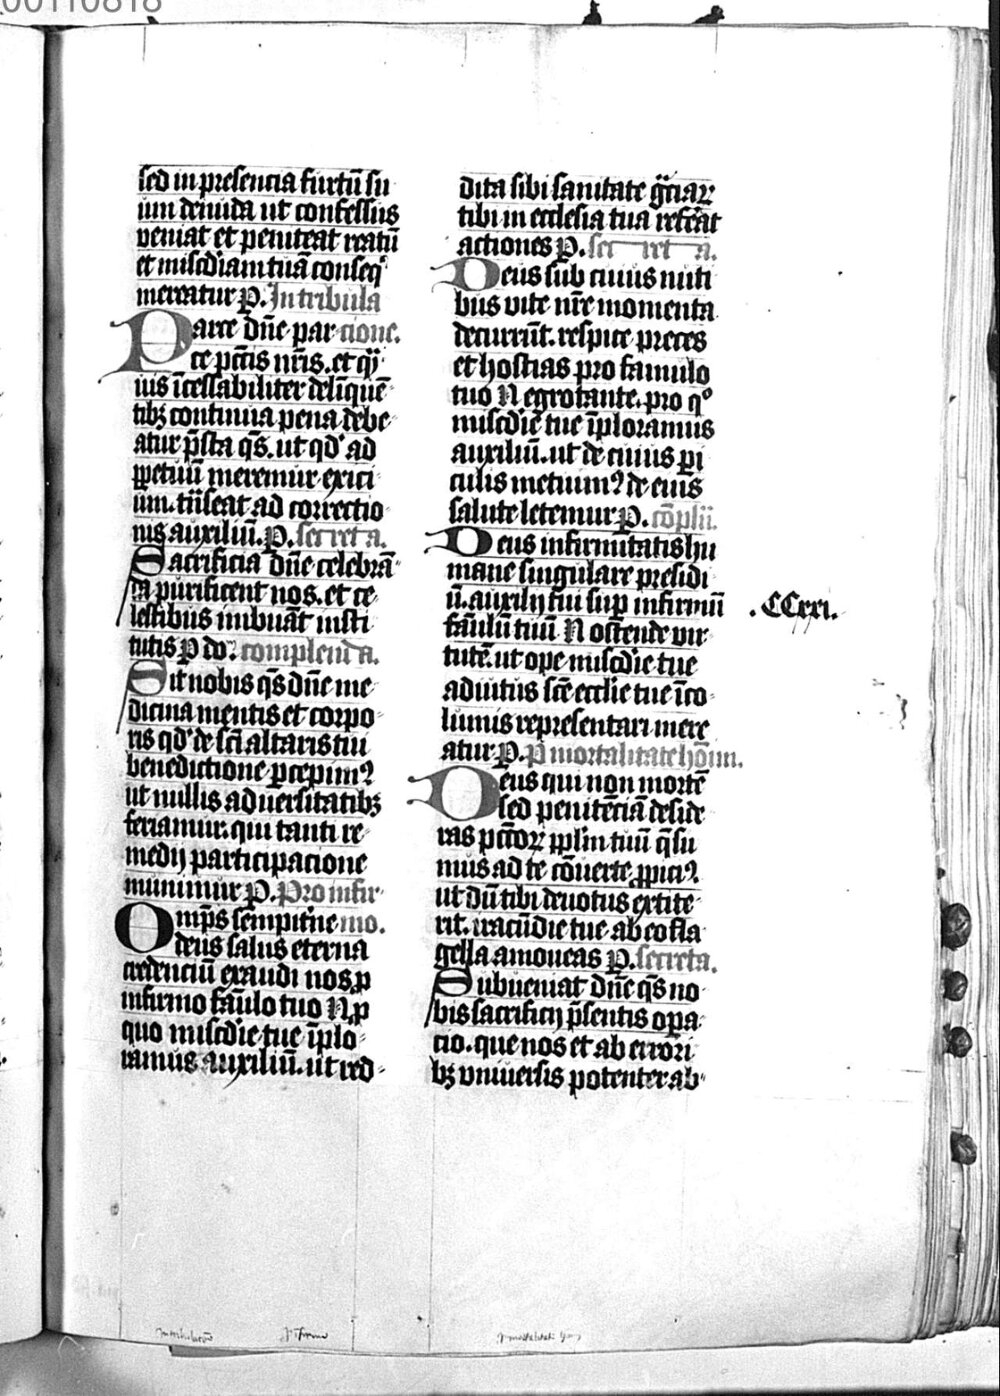 00110818
sed in presencia furtū su
um denuda ut confessus
veniat et peniteat reatū
et misc̄diam tuā conseqͥ
mereatur P. In tribula
Parce dn̄e par cione.
ce pctīs nr̄is. et qͥ
ius īcessabiliter delīquē
tibꝫ continua pena debe
atur p̄sta qs̄. ut qdͥ ad
ꝑpetuū meremur exici
um. trāseat ad correctio
nis auxiliū. P. secreta.
Sacrificia dn̄e celebrā
da purificent nos. et ce
lestibus imbuāt insti
tutis P do. complenda.
Sit nobis qs̄ dn̄e me
dicina mentis et corpo
ris qdͥ de sc̄i altaris tui
benedictione ꝑcepimꝰ
ut nullis aduersitatibꝫ
feriamur. qui tanti re
medij participacione
munimur P. Pro infir
Omps̄ sempitn̄e mo.
deus salus eterna
credenciū exaudi nos ꝓ
infirmo fāulo tuo N. ꝓ
quo misc̄die tue īplo
ramus auxiliū. ut red
dita sibi sanitate gr̄ciaꝝ
tibi in ecclesia tua referāt
actiones P. secreta.
Deus sub cuius nuti
bus vite nr̄e momenta
decurrūt. respice preces
et hostias pro famulo
tuo N egrotante. pro qͦ
misc̄die tue īploramus
auxiliū. ut de cuius ꝑi
culis metuimꝰ de eius
salute letemur P. cōplē.
Deus infirmitatis hu
mane singulare presidi
ū. auxilij tui suꝑ infirmū
fāulū tuū N ostende vir
tutē. ut ope misc̄die tue
adiutus sc̄e ecclīe tue īco
lumis representari mere
atur P. P mortalitate hoīm.
Deus qui non mortē
sed penitēciā deside
ras pctōꝝ pplm tuū qs̄u
mus ad te cōuerte ꝓpiciꝰ.
ut dū tibi deuotus extite
rit. iracūdie tue ab eo fla
gella amoueas P. secreta.
Subueniat dn̄e qs̄ no
bis sacrificij p̄sentis opa
cio. que nos et ab errori
bꝫ vniuersis potenter ab
.CCxxi.